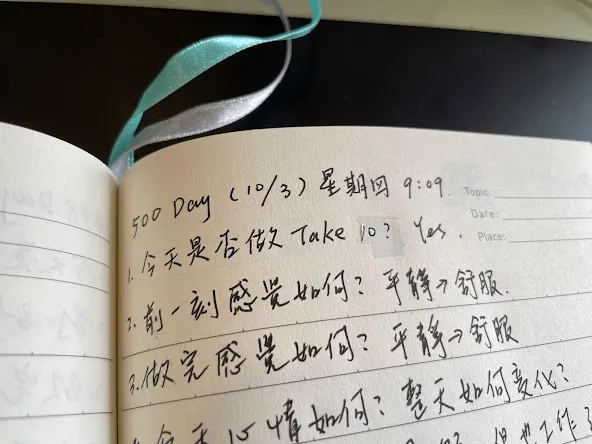 500 Day (10/3) 星期四 9:09.
Topic:
Date:
Place:
1. 今天是否做 Take 10? Yes.
2. 前一刻感覺如何? 平靜→舒服.
3. 做完感覺如何? 平靜→舒服
今天心情如何? 整天如何變化?